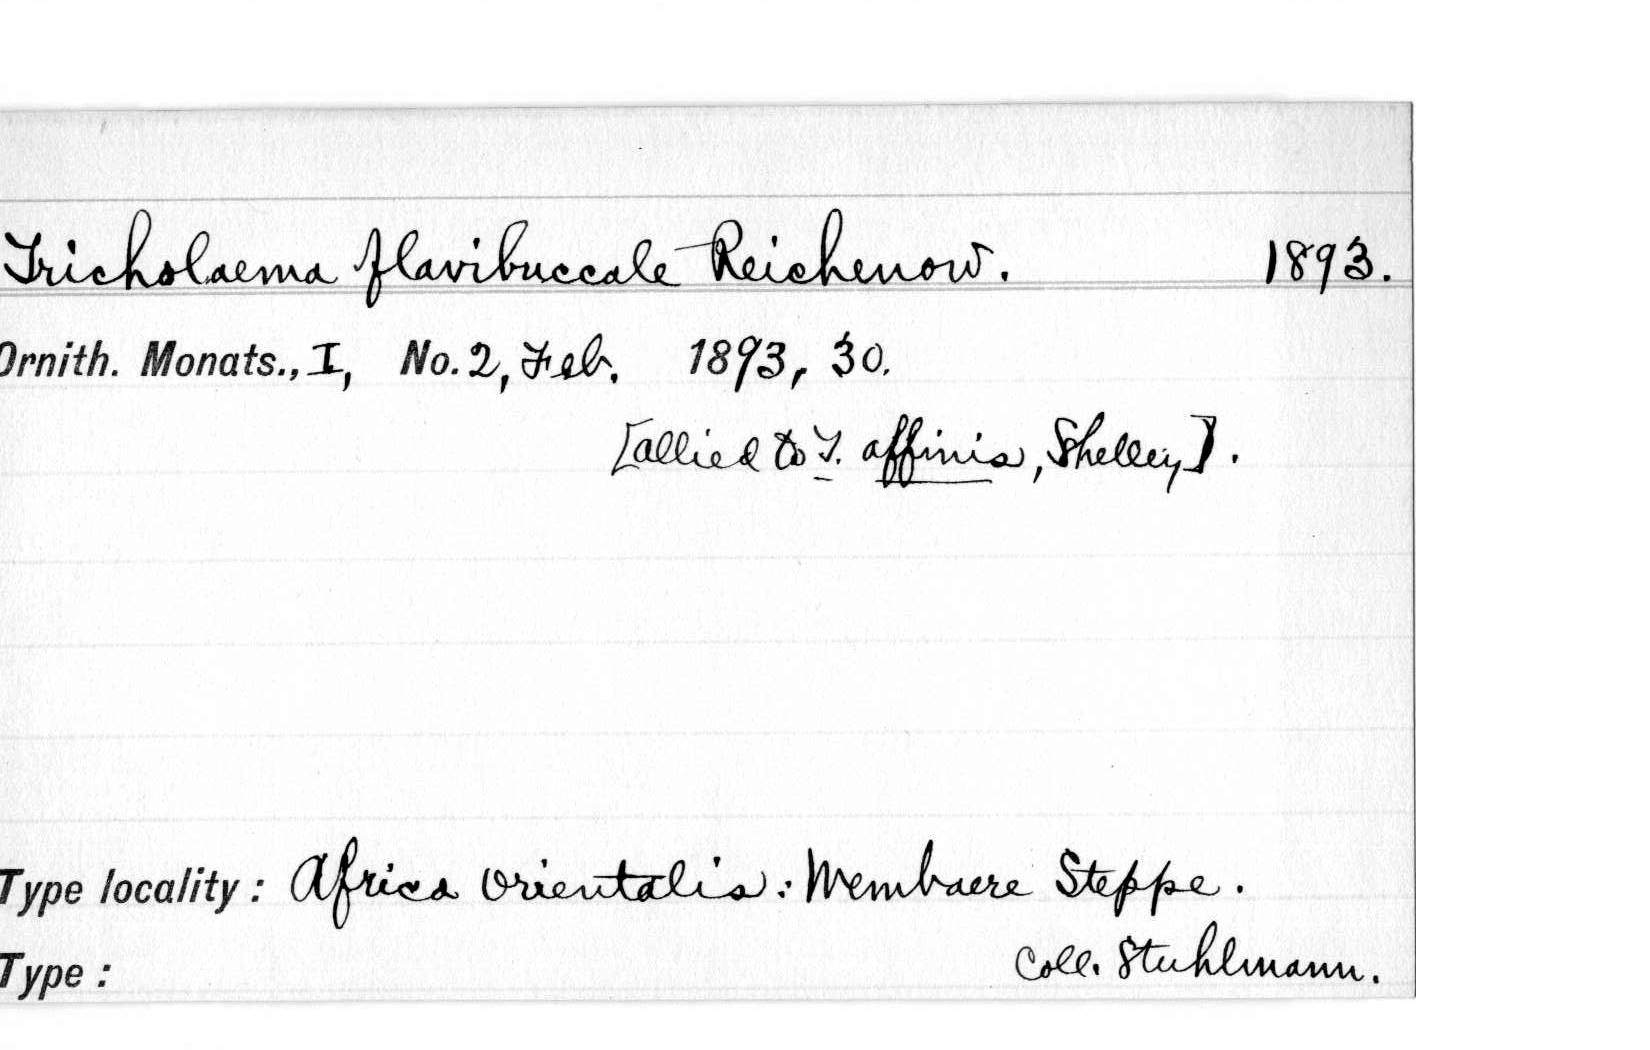 Tricholaema flavibuccale Reichenow. 1893.
Ornith. Monats., I, No. 2, Feb. 1893, 30.
[allied to T. affinis, Shelley].
Type locality: Africa orientalis: Wembaere Steppe.
Type: Coll. Stuhlmann.